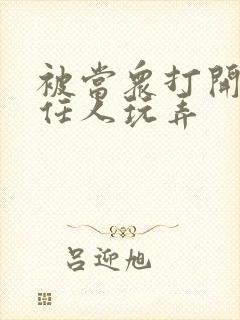 被當眾打開
任人玩弄
呂迎旭